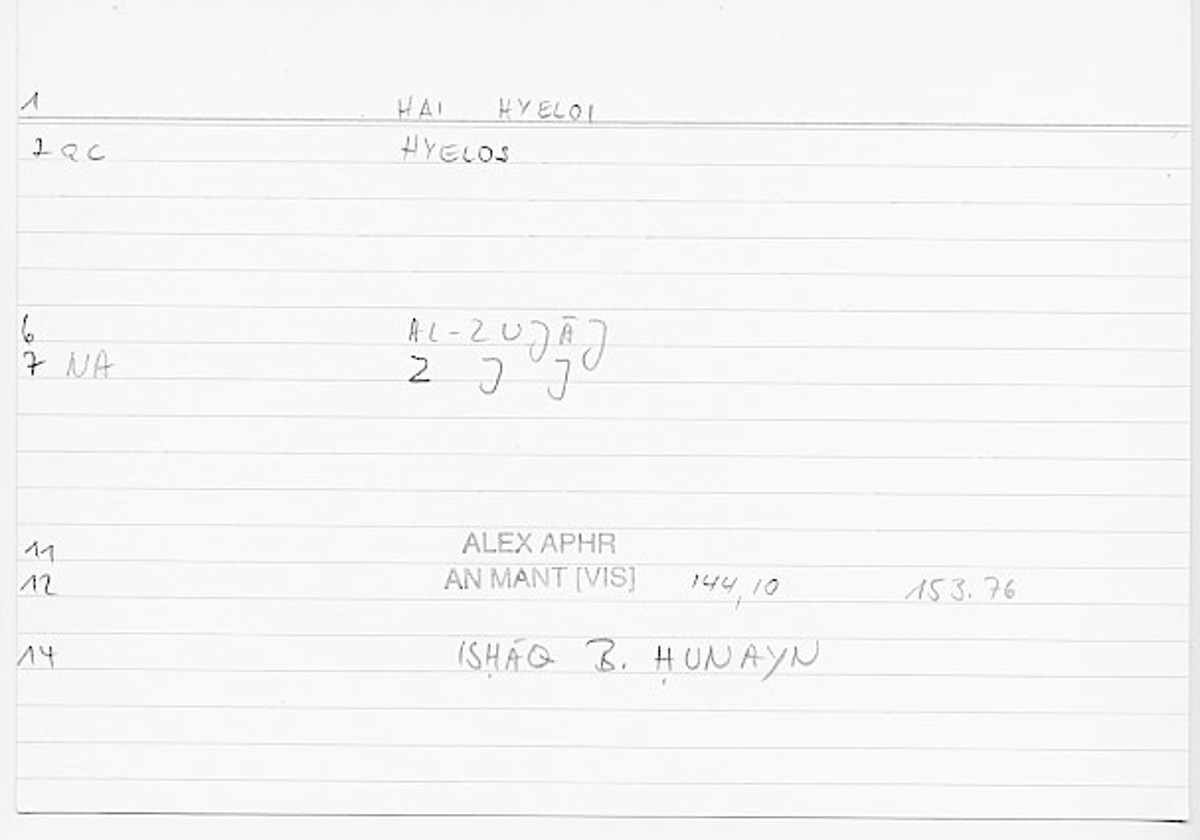 1 HAI HYELOI
2 QC HYELOS
6 AL-ZUJĀJ
7 NA Z J J
11 ALEX APHR
12 AN MANT [VIS] 144,10 153.76
14 ISḤĀQ B. ḤUNAYN